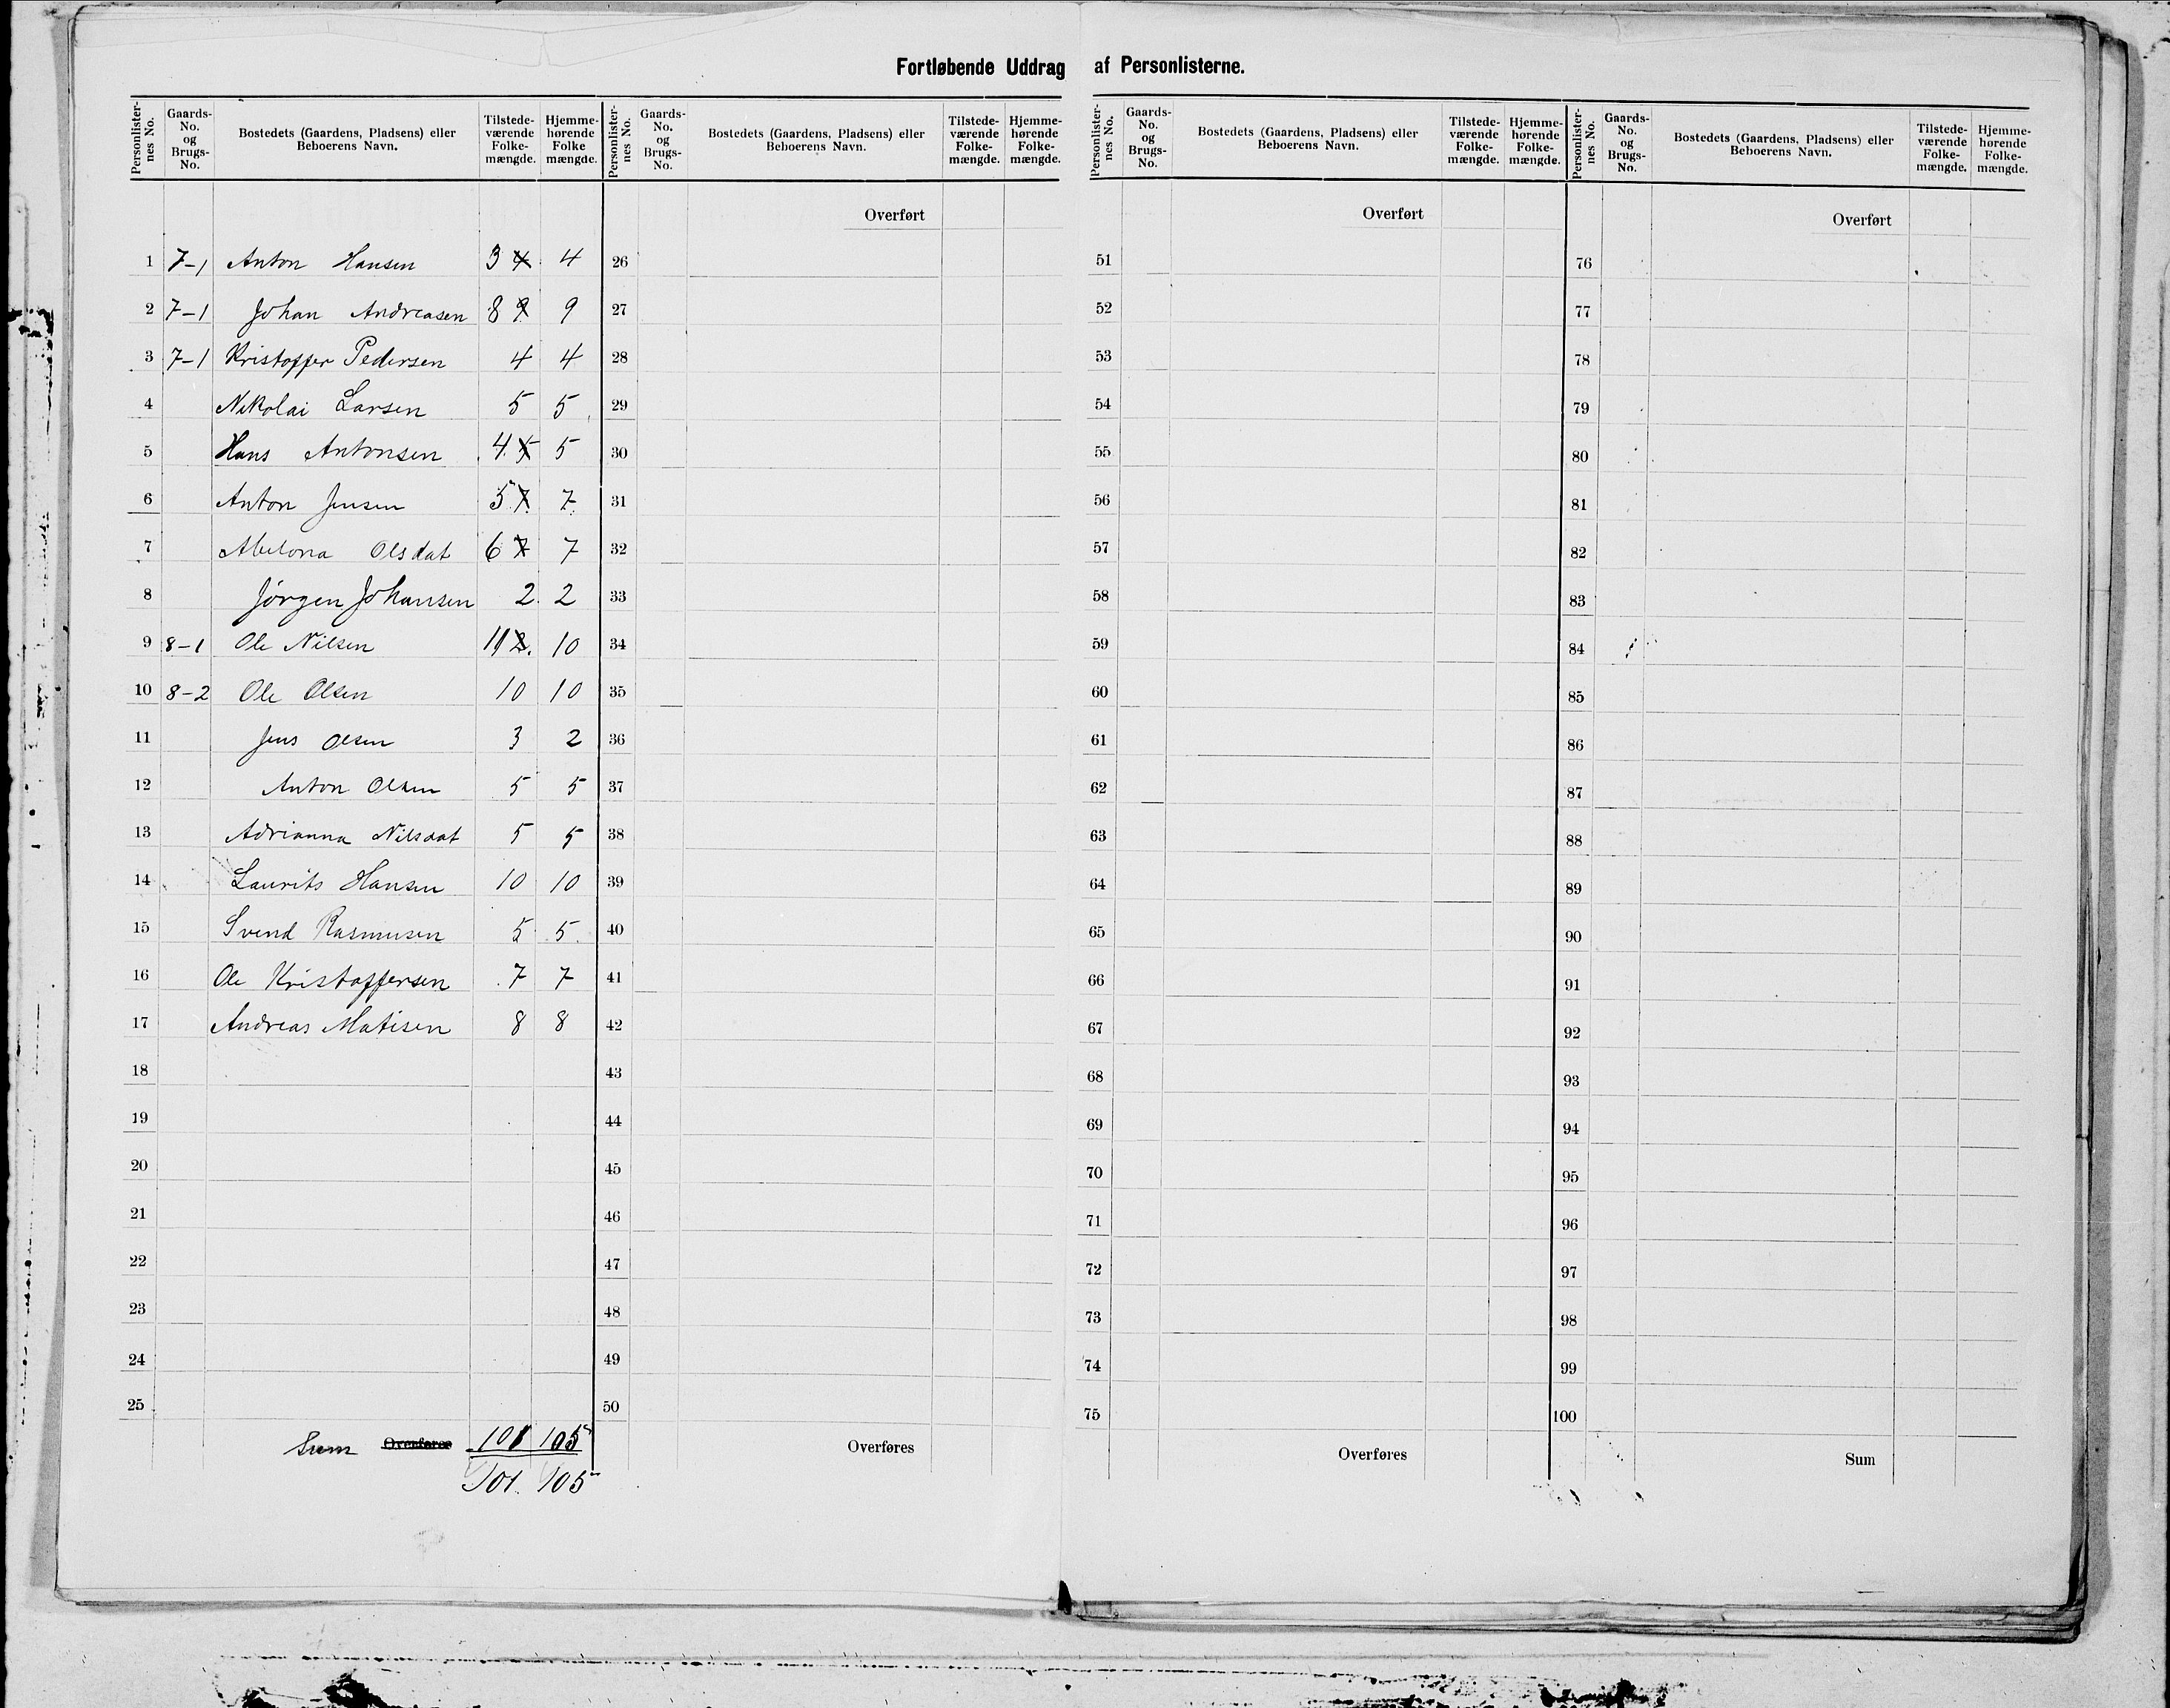 Fortløbende Uddrag af Personlisterne.
Personlister-nes No. Gaards-No. og Brugs-No. Bostedets (Gaardens, Pladsens) eller Beboerens Navn. Tilstede-værende Folke-mængde. Hjemme-hørende Folke mængde. Personlister-nes No. Gaards-No. og Brugs-No. Bostedets (Gaardens, Pladsens) eller Beboerens Navn. Tilstede-værende Folke-mængde. Hjemme-hørende Folke-mængde. Personlister-nes No. Gaards-No. og Brugs-No. Bostedets (Gaardens, Pladsens) eller Beboerens Navn. Tilstede-værende Folke-mængde. Hjemme-hørende Folke-mængde. Personlister-nes No. Gaards-No. og Brugs-No. Bostedets (Gaardens, Pladsens) eller Beboerens Navn. Tilstede-værende Folke-mængde. Hjemme-hørende Folke-mængde.
Overført Overført Overført
1 7-1 Anton Hansen 3 4 4 26 51 76
2 7-1 Johan Andreasen 8 9 9 27 52 77
3 7-1 Kristoffer Pedersen 4 4 28 53 78
4 Nikolai Larsen 5 5 29 54 79
5 Hans Antonsen 4 5 5 30 55 80
6 Anton Jensen 5 7 7 31 56 81
7 Abelona Olsdat 6 7 7 32 57 82
8 Jørgen Johansen 2 2 33 58 83
9 8-1 Ole Nilsen 11 10 34 59 84
10 8-2 Ole Olsen 10 10 35 60 85
11 Jens Olsen 3 2 36 61 86
12 Anton Olsen 5 5 37 62 87
13 Adrianna Nilsdat 5 5 38 63 88
14 Laurits Hansen 10 10 39 64 89
15 Svend Rasmusen 5 5 40 65 90
16 Ole Kristoffersen 7 7 41 66 91
17 Andreas Matisen 8 8 42 67 92
18 43 68 93
19 44 69 94
20 45 70 95
21 46 71 96
22 47 72 97
23 48 73 98
24 49 74 99
25 50 75 100
Sum Overføres 101 105 Overføres Overføres Sum
101 105